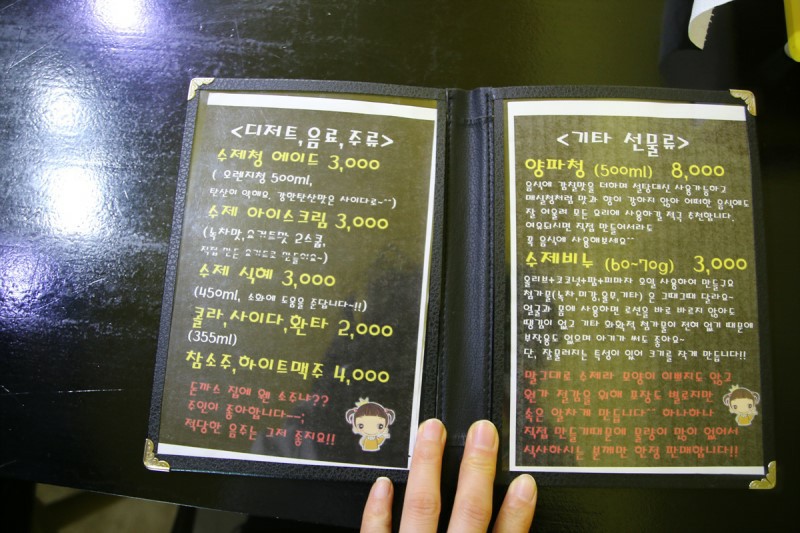 <디저트,음료,주류>
수제청 에이드 3,000
( 오렌지청 500ml,
탄산이 약해요. 강한탄산맛은 사이다로~^^)
수제 아이스크림 3,000
(녹차맛,요거트맛 2스쿱,
직접 만든 요거트로 만들어요~)
수제 식혜 3,000
(450ml, 소화에 도움을 준답니다~!!)
콜라,사이다,환타 2,000
(355ml)
참소주,하이트맥주 4,000
돈까스 집에 웬 소주냐??
주인이 좋아합니다--;
적당한 음주는 그저 좋지요!!
<기타 선물류>
양파청 (500ml) 8,000
음식에 감칠맛을 더하며 설탕대신 사용가능하고
매실청처럼 맛과 향이 강하지 않아 어떠한 음식에도
잘 어울려 모든 요리에 사용하길 적극 추천합니다.
여유되시면 직접 만들어서라도
꼭 음식에 사용해보세요^^
수제비누 (60~70g) 3,000
올리브+코코넛+팜+피마자 오일 사용하여 만들고요
첨가물(녹차,미강,율무,기타) 은 그때그때 달라요~
얼굴과 몸에 사용하면 로션을 바로 바르지 않아도
땡김이 없고 기타 화학적 첨가물이 전혀 없기 때문에
부작용도 없으며 아기가 써도 좋아요~
단, 잘물러지는 특성이 있어 크기를 작게 만듭니다!!
말그대로 수제라 모양이 이쁘지도 않고
원가 절감을 위해 포장도 별로지만
속은 알차게 만듭니다^^ 하나하나
직접 만들기때문에 물량이 많이 없어서
식사하시는 분께만 한정 판매합니다!!